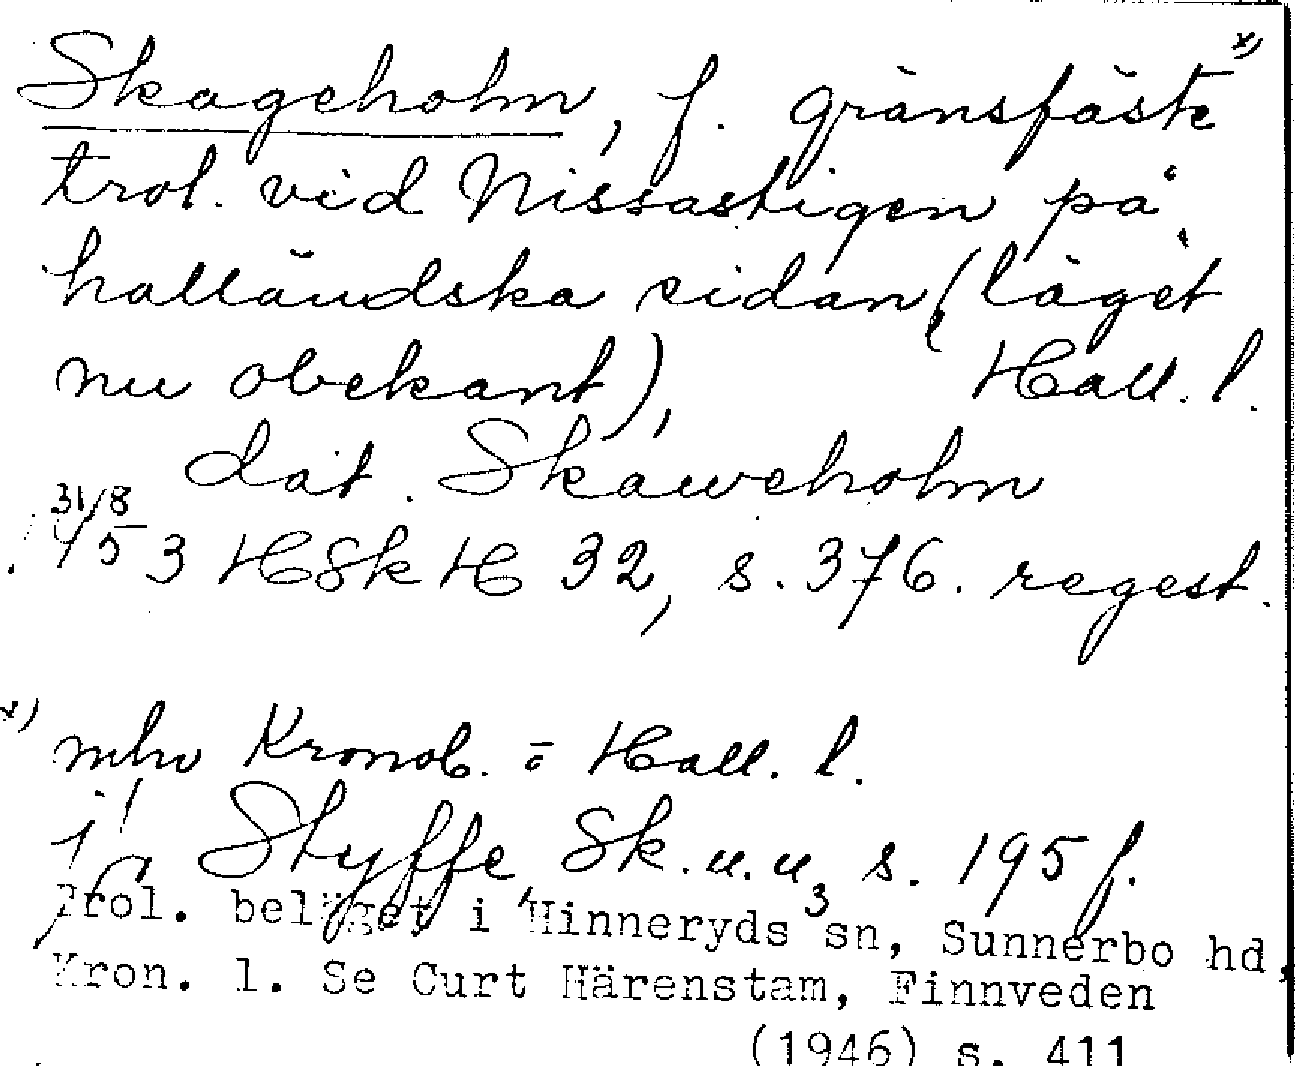 Skageholm, f. gränsfäste x)
trol. vid Nissastigen på
halländska sidan (läget
nu obekant), Hall. l.
dat. Skaweholm
31/8
1453 HSkH 32, s. 376. regest.
x) mln Kronob. o Hall. l.
jfr Styffe Sk.u.u3 s. 195 f.
Trol. beläget i Hinneryds sn, Sunnerbo hd,
Kron. l. Se Curt Härenstam, Finnveden
(1946) s. 411